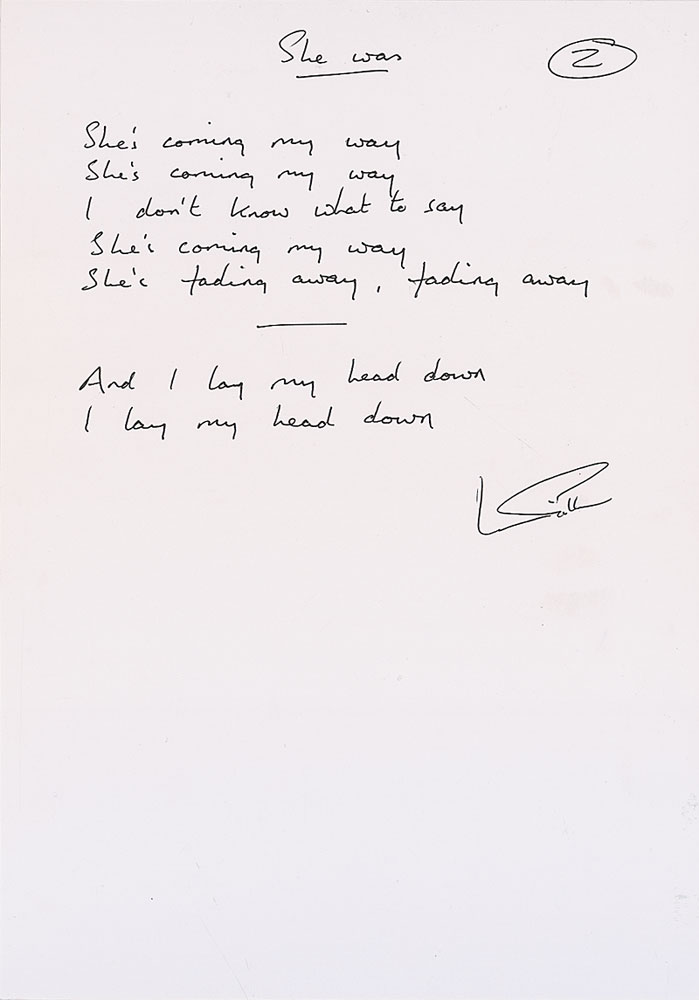 She was
2
She's coming my way
She's coming my way
I don't know what to say
She's coming my way
She's fading away, fading away
And I lay my head down
I lay my head down